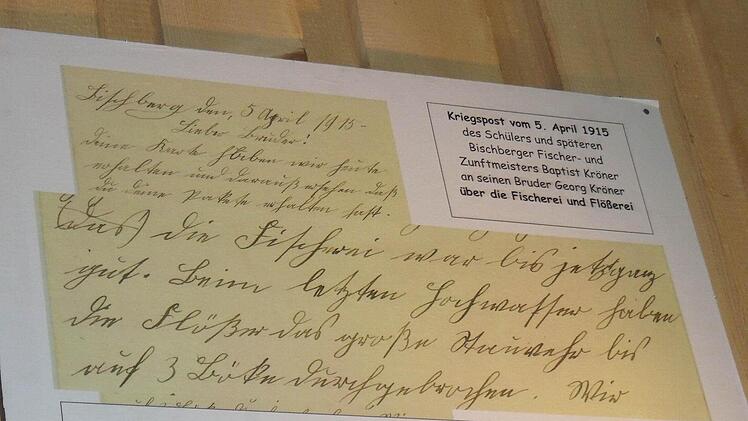 Bischberg den, 5 April 1915-
Lieber Bruder!
deine Karte haben wir heute
erhalten und daraus ersehen daß
du deine Pakete erhalten hast.
(das) die Fischerei war bis jetzt ganz
gut. Beim letzten Hochwasser haben
die Flößer das große Stauwehr bis
auf 3 Böke durchgebrochen. Wir
Kriegspost vom 5. April 1915
des Schülers und späteren
Bischberger Fischer- und
Zunftmeisters Baptist Kröner
an seinen Bruder Georg Kröner
über die Fischerei und Flößerei